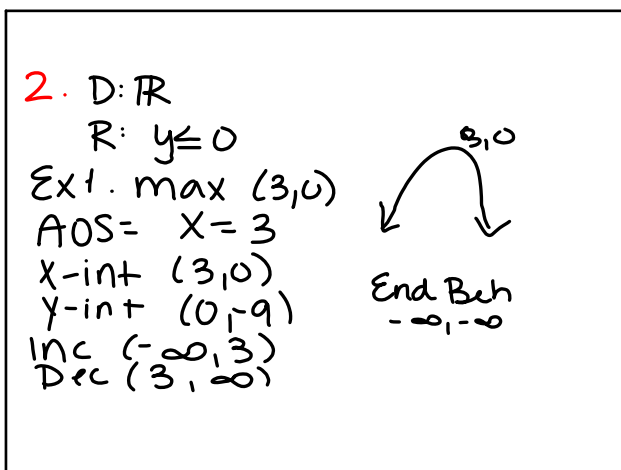 2. D: ℝ
R: y ≤ 0
Ext. max (3,0)
AOS= X=3
X-int (3,0)
y-int (0,-9)
Inc (-∞,3)
Dec (3,∞)
3,0
End Beh
-∞,-∞